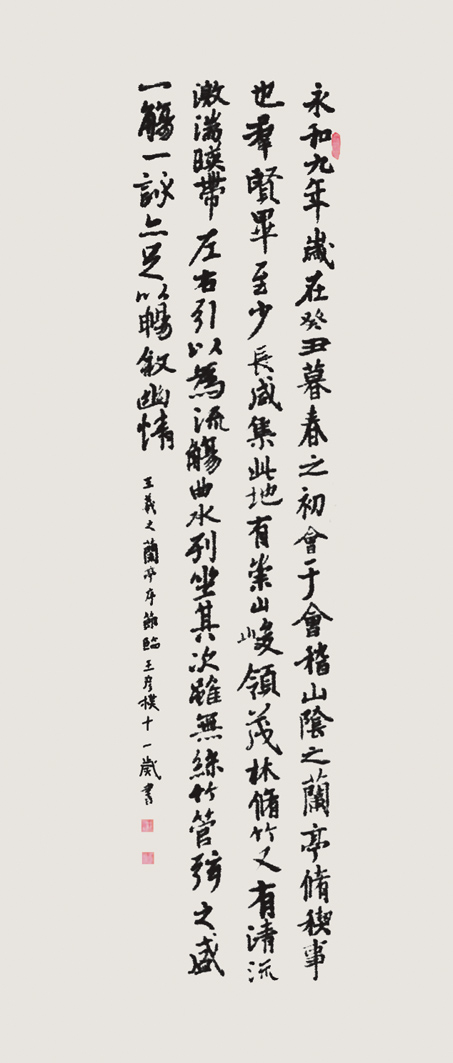 永和九年歲在癸丑暮春之初會于會稽山陰之蘭亭脩稧事
也羣賢畢至少長咸集此地有崇山峻領茂林脩竹又有清流
激湍暎帶左右引以為流觴曲水列坐其次雖無絲竹管弦之盛
一觴一詠亦足以暢敘幽情
王羲之蘭亭序節臨王彥樸十一歲書